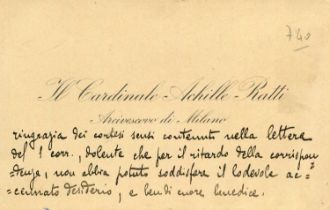 740
Il Cardinale Achille Ratti
Arcivescovo di Milano
ringrazia dei cortesi sensi contenuti nella lettera
del 1 corr., dolente che per il ritardo della corrispon=
denza, non abbia potuto soddisfare il lodevole ac=
=cennato desiderio, e di cuore benedice.